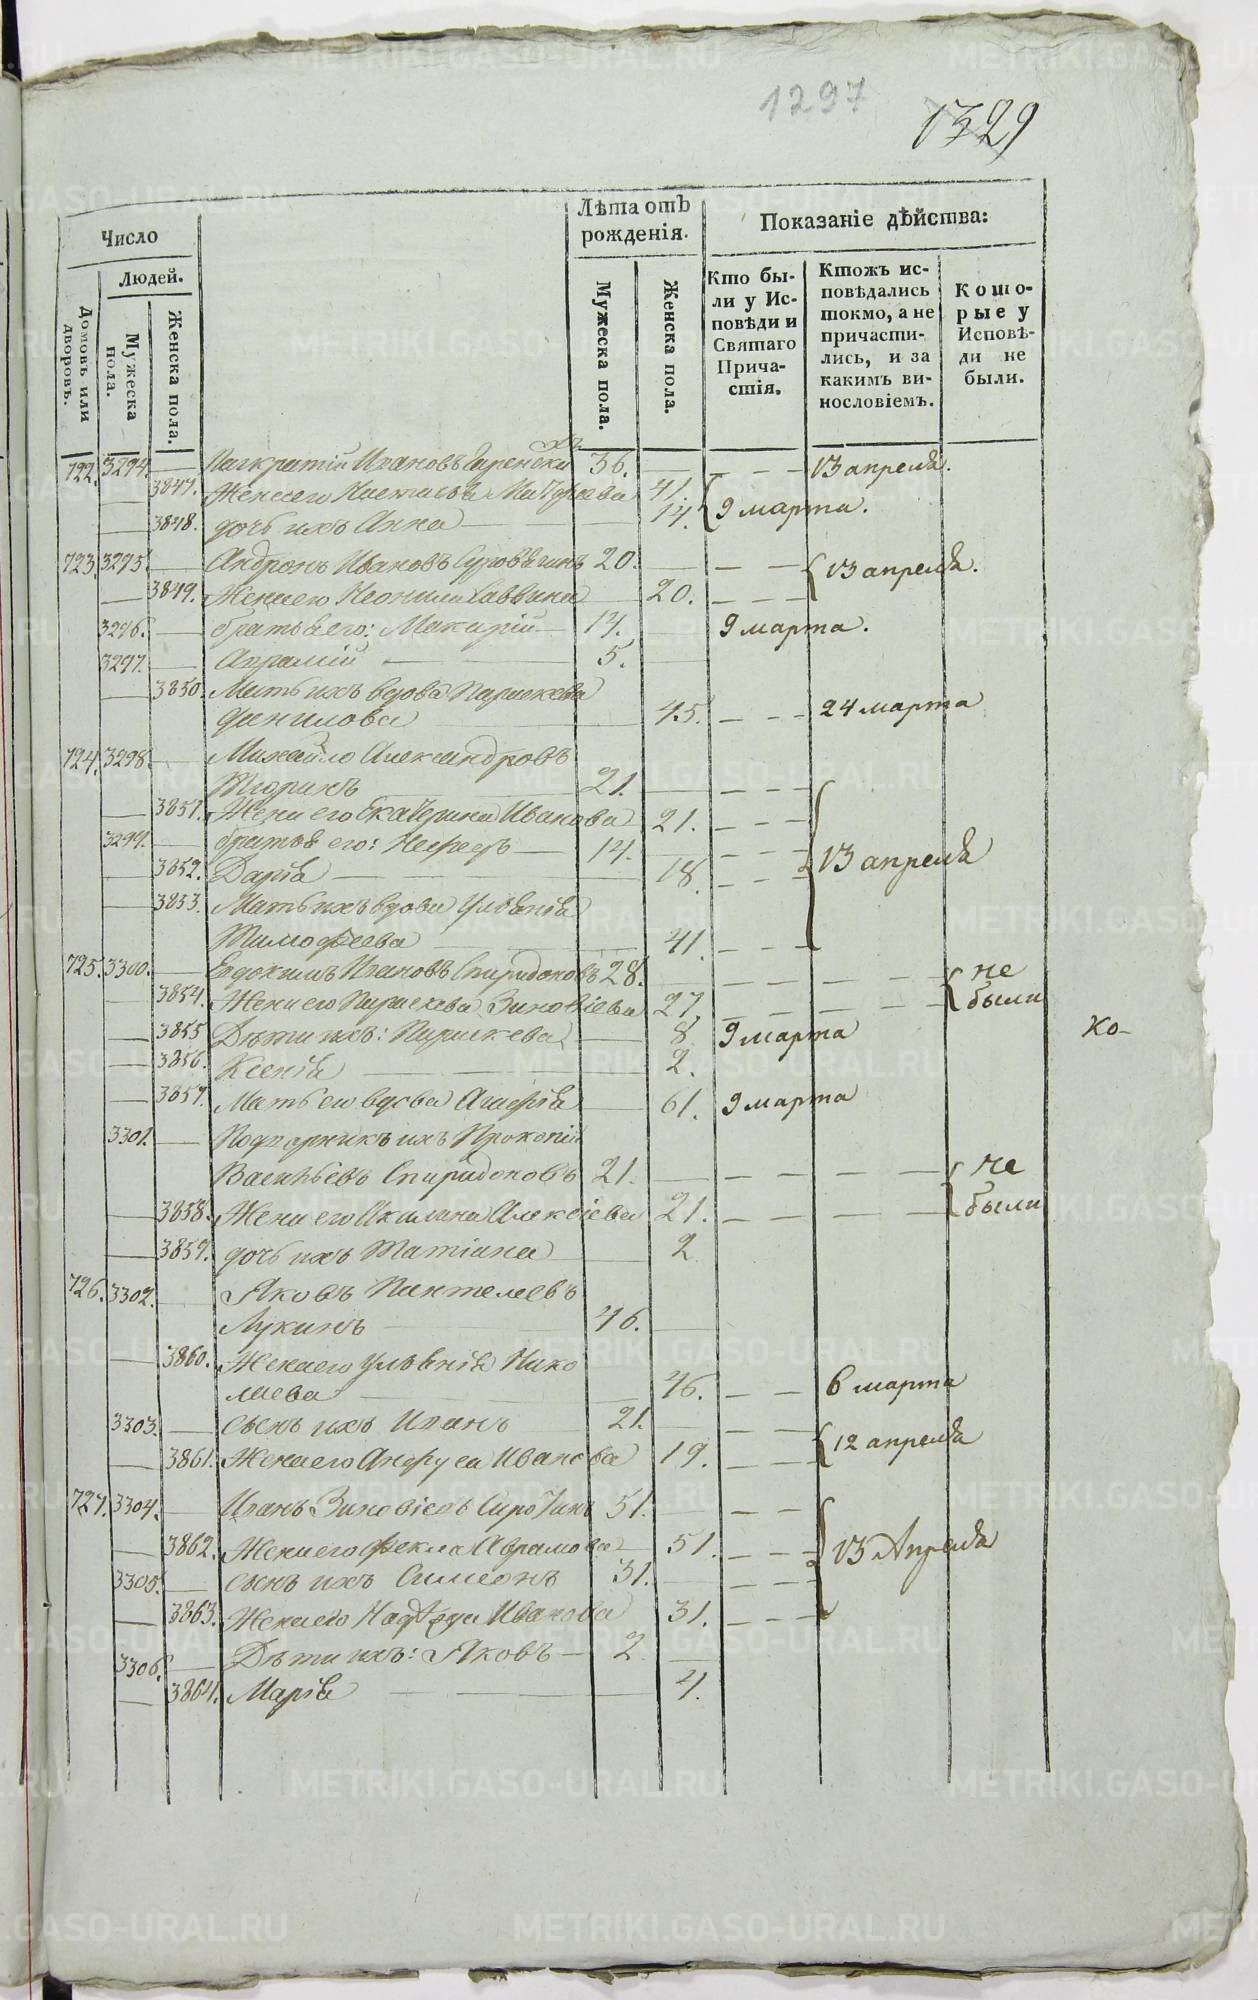 1297
1329
Число
Людей.
Домовъ или дворовъ.
Мужеска пола.
Женска пола.
Лѣта отъ
рожденія.
Мужеска пола.
Женска пола.
Показаніе дѣйства:
Кто бы-
ли у Ис-
повѣди и
Святаго
Прича-
стія.
Ктожъ ис-
повѣдались
токмо, а не
причасти-
лись, и за
какимъ ви-
нословіемъ.
Кото-
рые у
Исповѣ-
ди не
были.
722. 3294 Панкратій Ивановъ 36. 13 апреля.
3847. Жена его Настасья 41. 9 марта.
3848. дочь ихъ Анна 14.
723. 3295. Андронъ Ивановъ 20. 13 апреля.
3849. Жена его Неонила Саввина 20.
3296. братья его: Макарій 14. 9 марта.
3297. 5.
3850. Мать ихъ вдова Параскева
Данилова 45. 24 марта
724. 3298. Михайло Александровъ
21.
3851. Жена его Екатерина Иванова 21.
3299. братья его: Нефедъ 14. 13 апреля
3852. Дарія 18.
3853. Мать ихъ вдова Ульянія
Тимофеева 41.
725. 3300. Евдокимъ Ивановъ Спиридоновъ 28. не
3854. Жена его Параскева Зиновіева 27. были
3855 Дѣти ихъ: Параскева 8 9 марта
ко-
3856. Ксенія 2.
3857. Мать его вдова Агафія 61. 9 марта
3301. ихъ Прокопій
Васильевъ Спиридоновъ 21. не
3858. Жена его Акилина Алексіева 21. были
3859. дочь ихъ Татіана 2
726. 3302. Яковъ Пантелеевъ
Лукинъ 46.
3860. Жена его Ульянія Нико
лаева 46. 6 марта
3303. сынъ ихъ Иванъ 21. 12 апреля
3861. Жена его Иванова 19.
727. 3304. Иванъ Зиновіевъ 51.
3862. Жена его Фекла Аврамова 51. 13 Апреля
3305. сынъ ихъ Симеонъ 31.
3863. Жена его Надежда Иванова 31.
3306. Дѣти ихъ: Яковъ 2
3864. Марія 4.